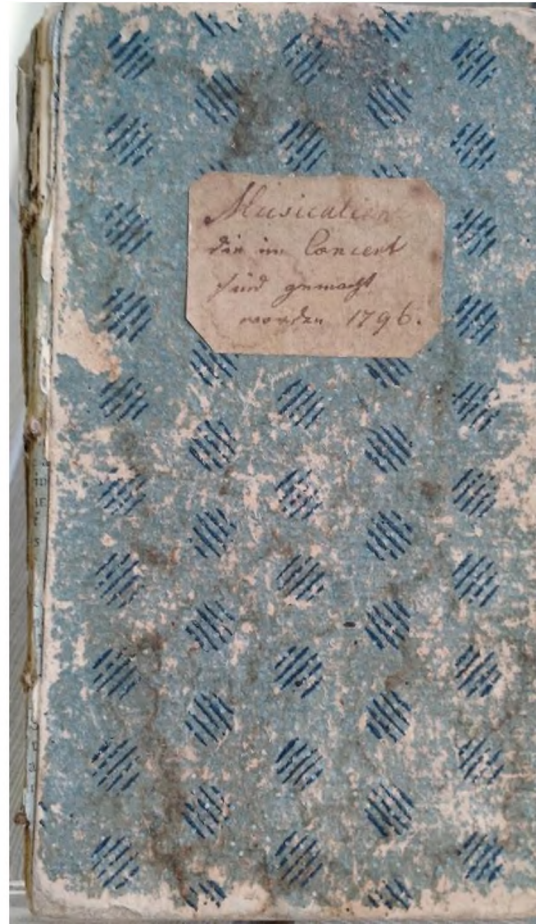 Musicalien
die im Concert
sind gemacht
worden 1796.